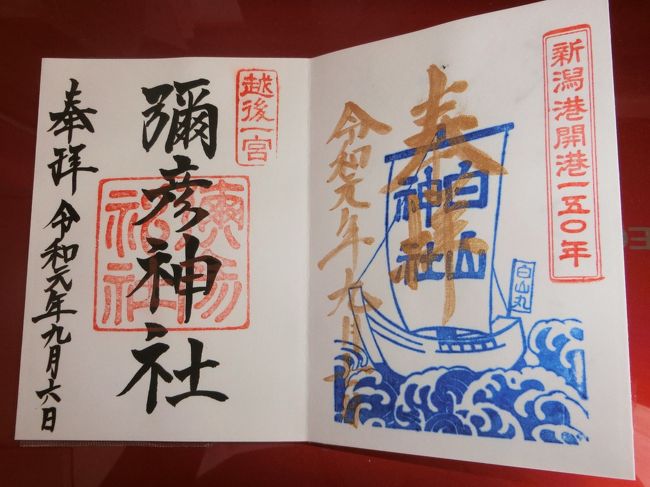 新潟港開港一五〇年
奉拝
白山
神社
白山丸
令和元年九月
越後一宮
彌彦神社
奉拝 令和元年九月六日